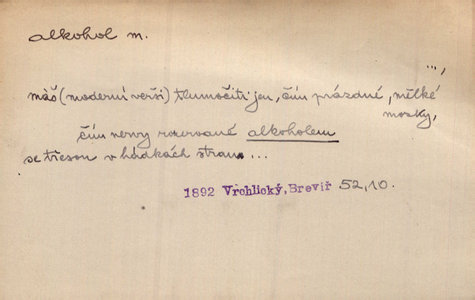 alkohol m.
...,
máš (moderní verši) tlumočiti jen, čím prázdné, mělké
mozky,
čím nervy rozervané alkoholem
se třesou v hádkách stran...
1892 Vrchlický, Breviř 52,10.